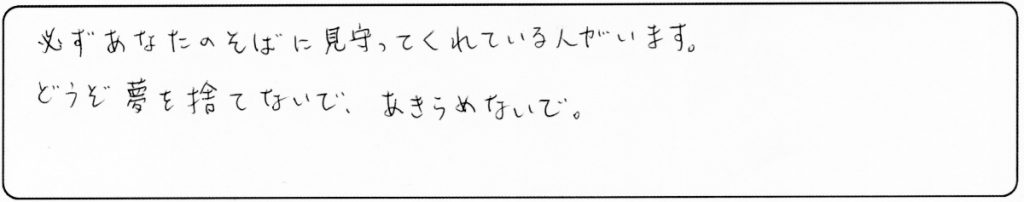 必ずあなたのそばに見守ってくれている人がいます。
どうぞ夢を捨てないで、あきらめないで。